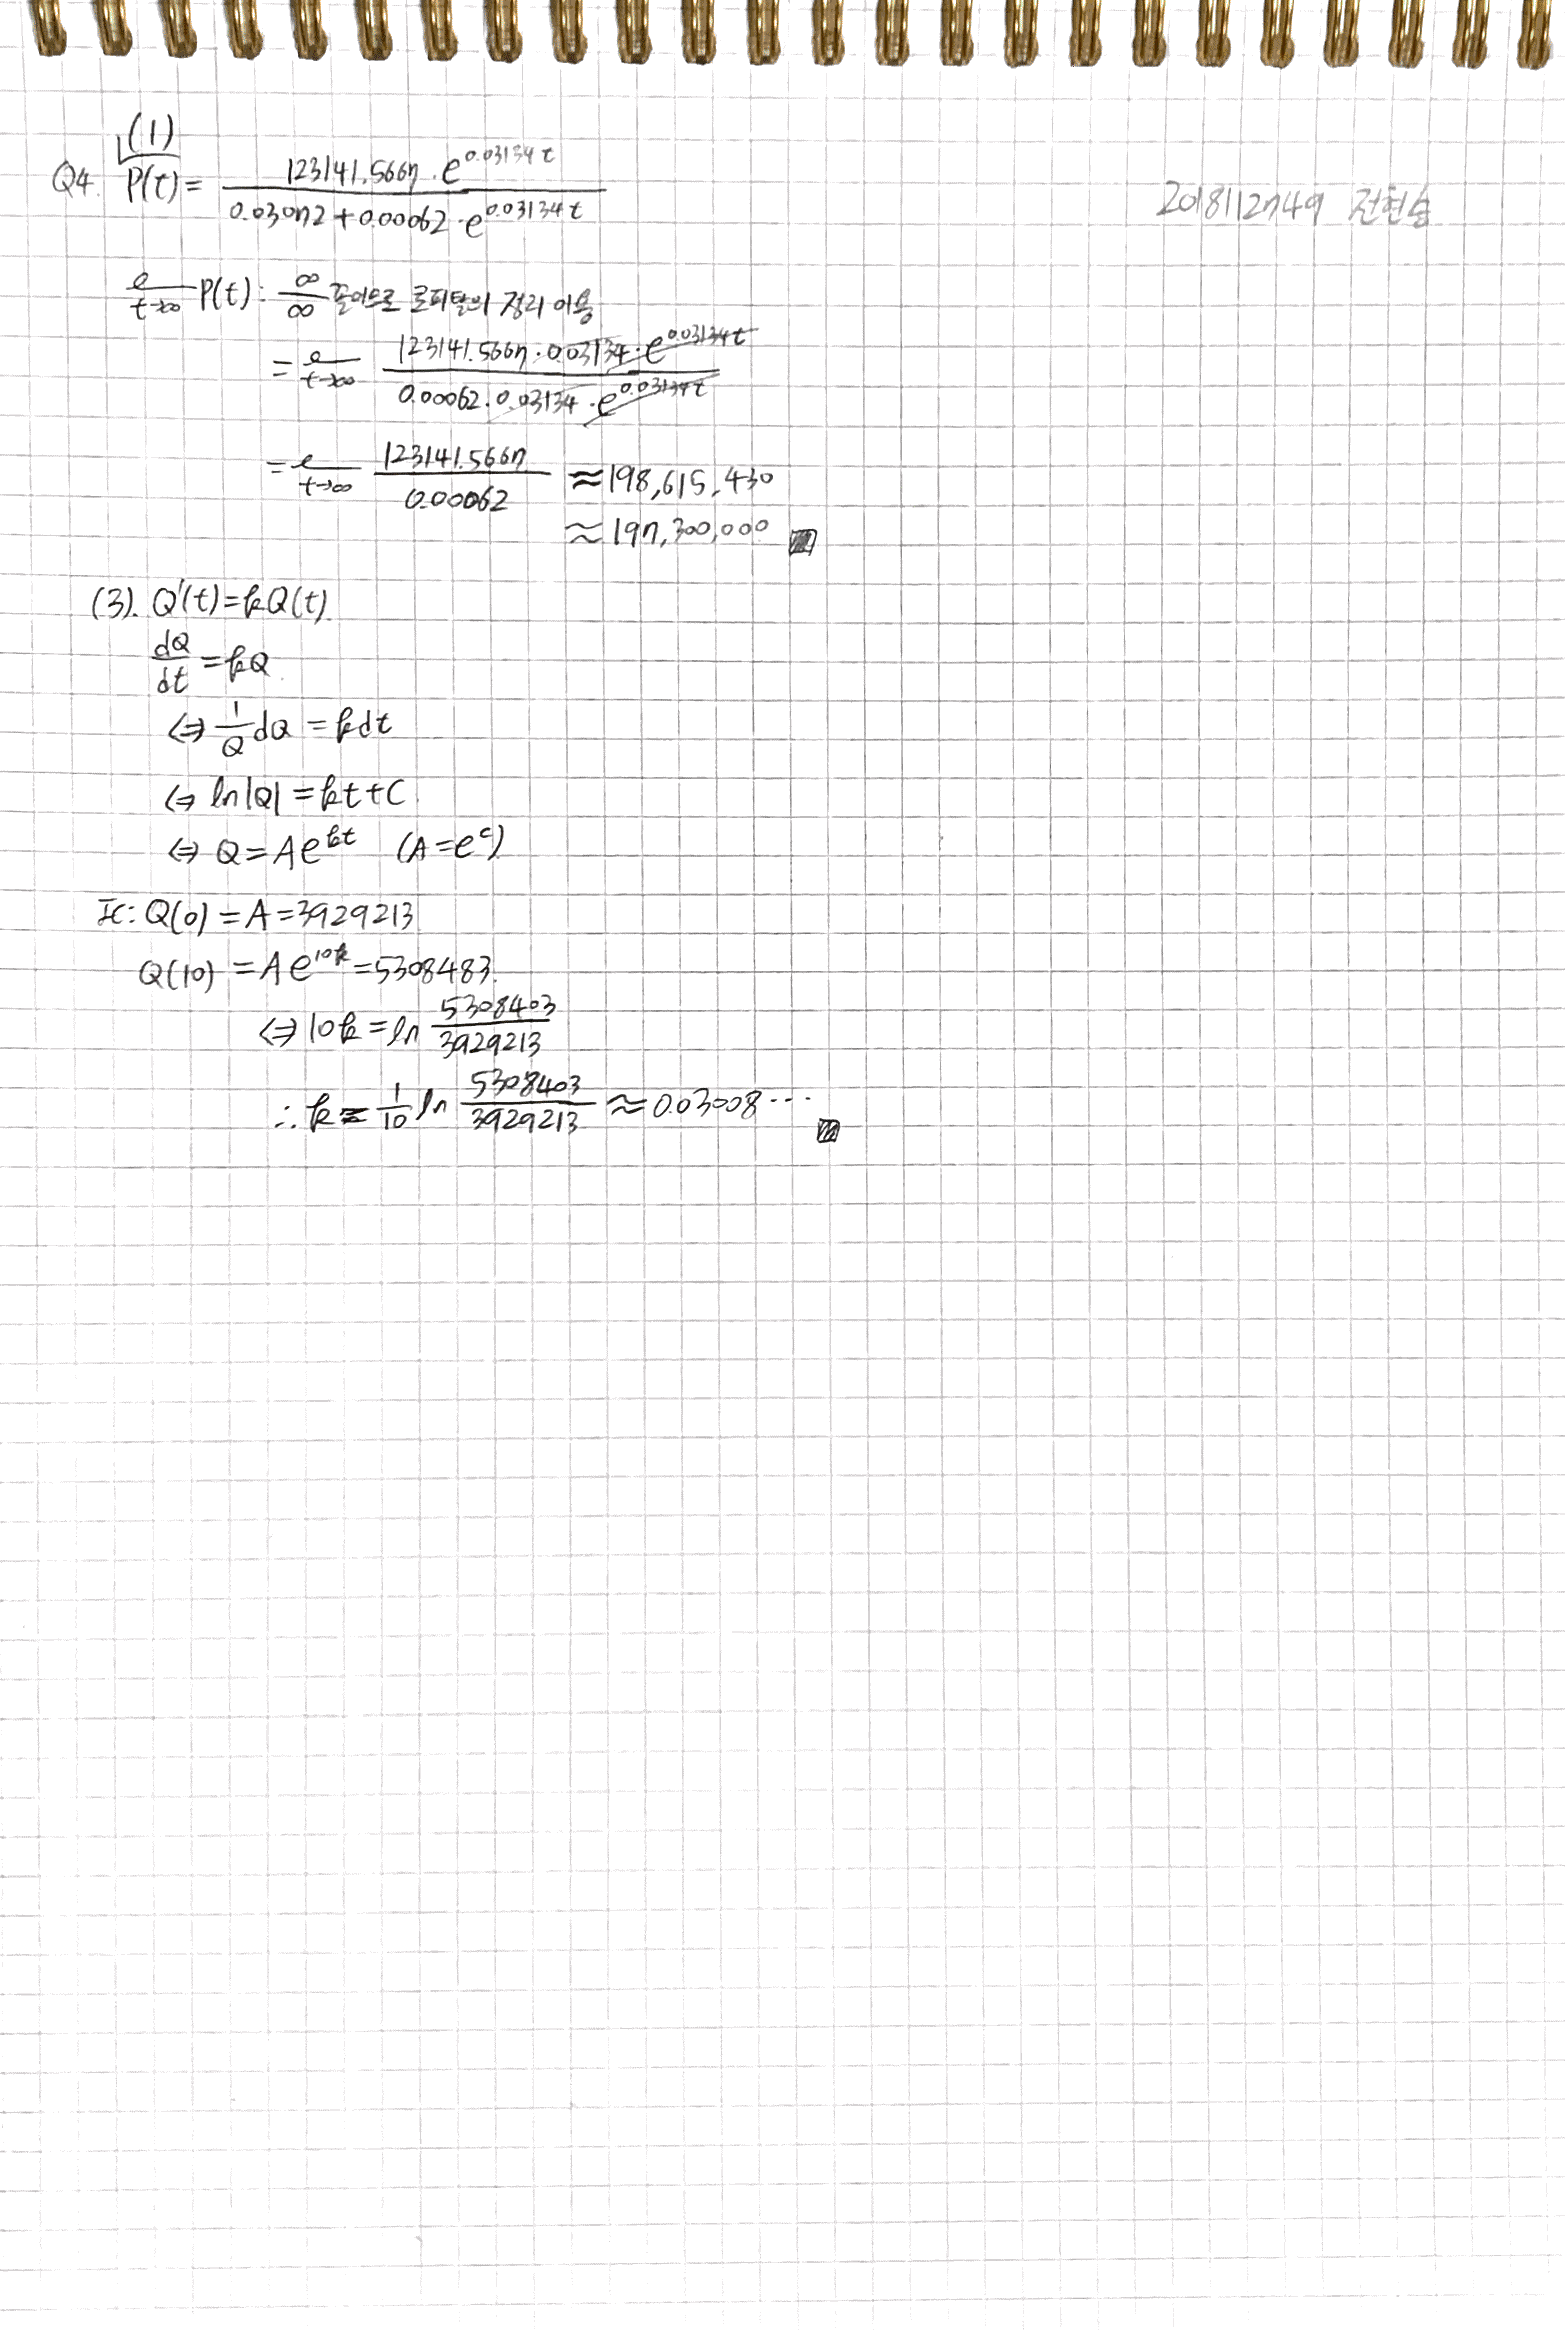 (1)
Q4. P(t) = 123141.5667 · e^0.03134t / 0.03072 + 0.00062 · e^0.03134t
2018112749 전현승
l t→∞ P(t) : ∞/∞ 꼴이므로 로피탈의 정리 이용
= l t→∞ 123141.5667 · 0.03134 · e^0.03134t / 0.00062 · 0.03134 · e^0.03134t
= l t→∞ 123141.5667 / 0.00062 ≈ 198,615,430
≈ 197,300,000
(3). Q'(t) = kQ(t).
dQ/dt = kQ.
⇔ 1/Q dQ = kdt
⇔ ln|Q| = kt + C.
⇔ Q = Ae^kt (A = e^c)
IC: Q(0) = A = 3929213
Q(10) = Ae^10k = 5308483.
⇔ 10k = ln 5308403 / 3929213
∴ k = 1/10 ln 5308403 / 3929213 ≈ 0.03008 ···